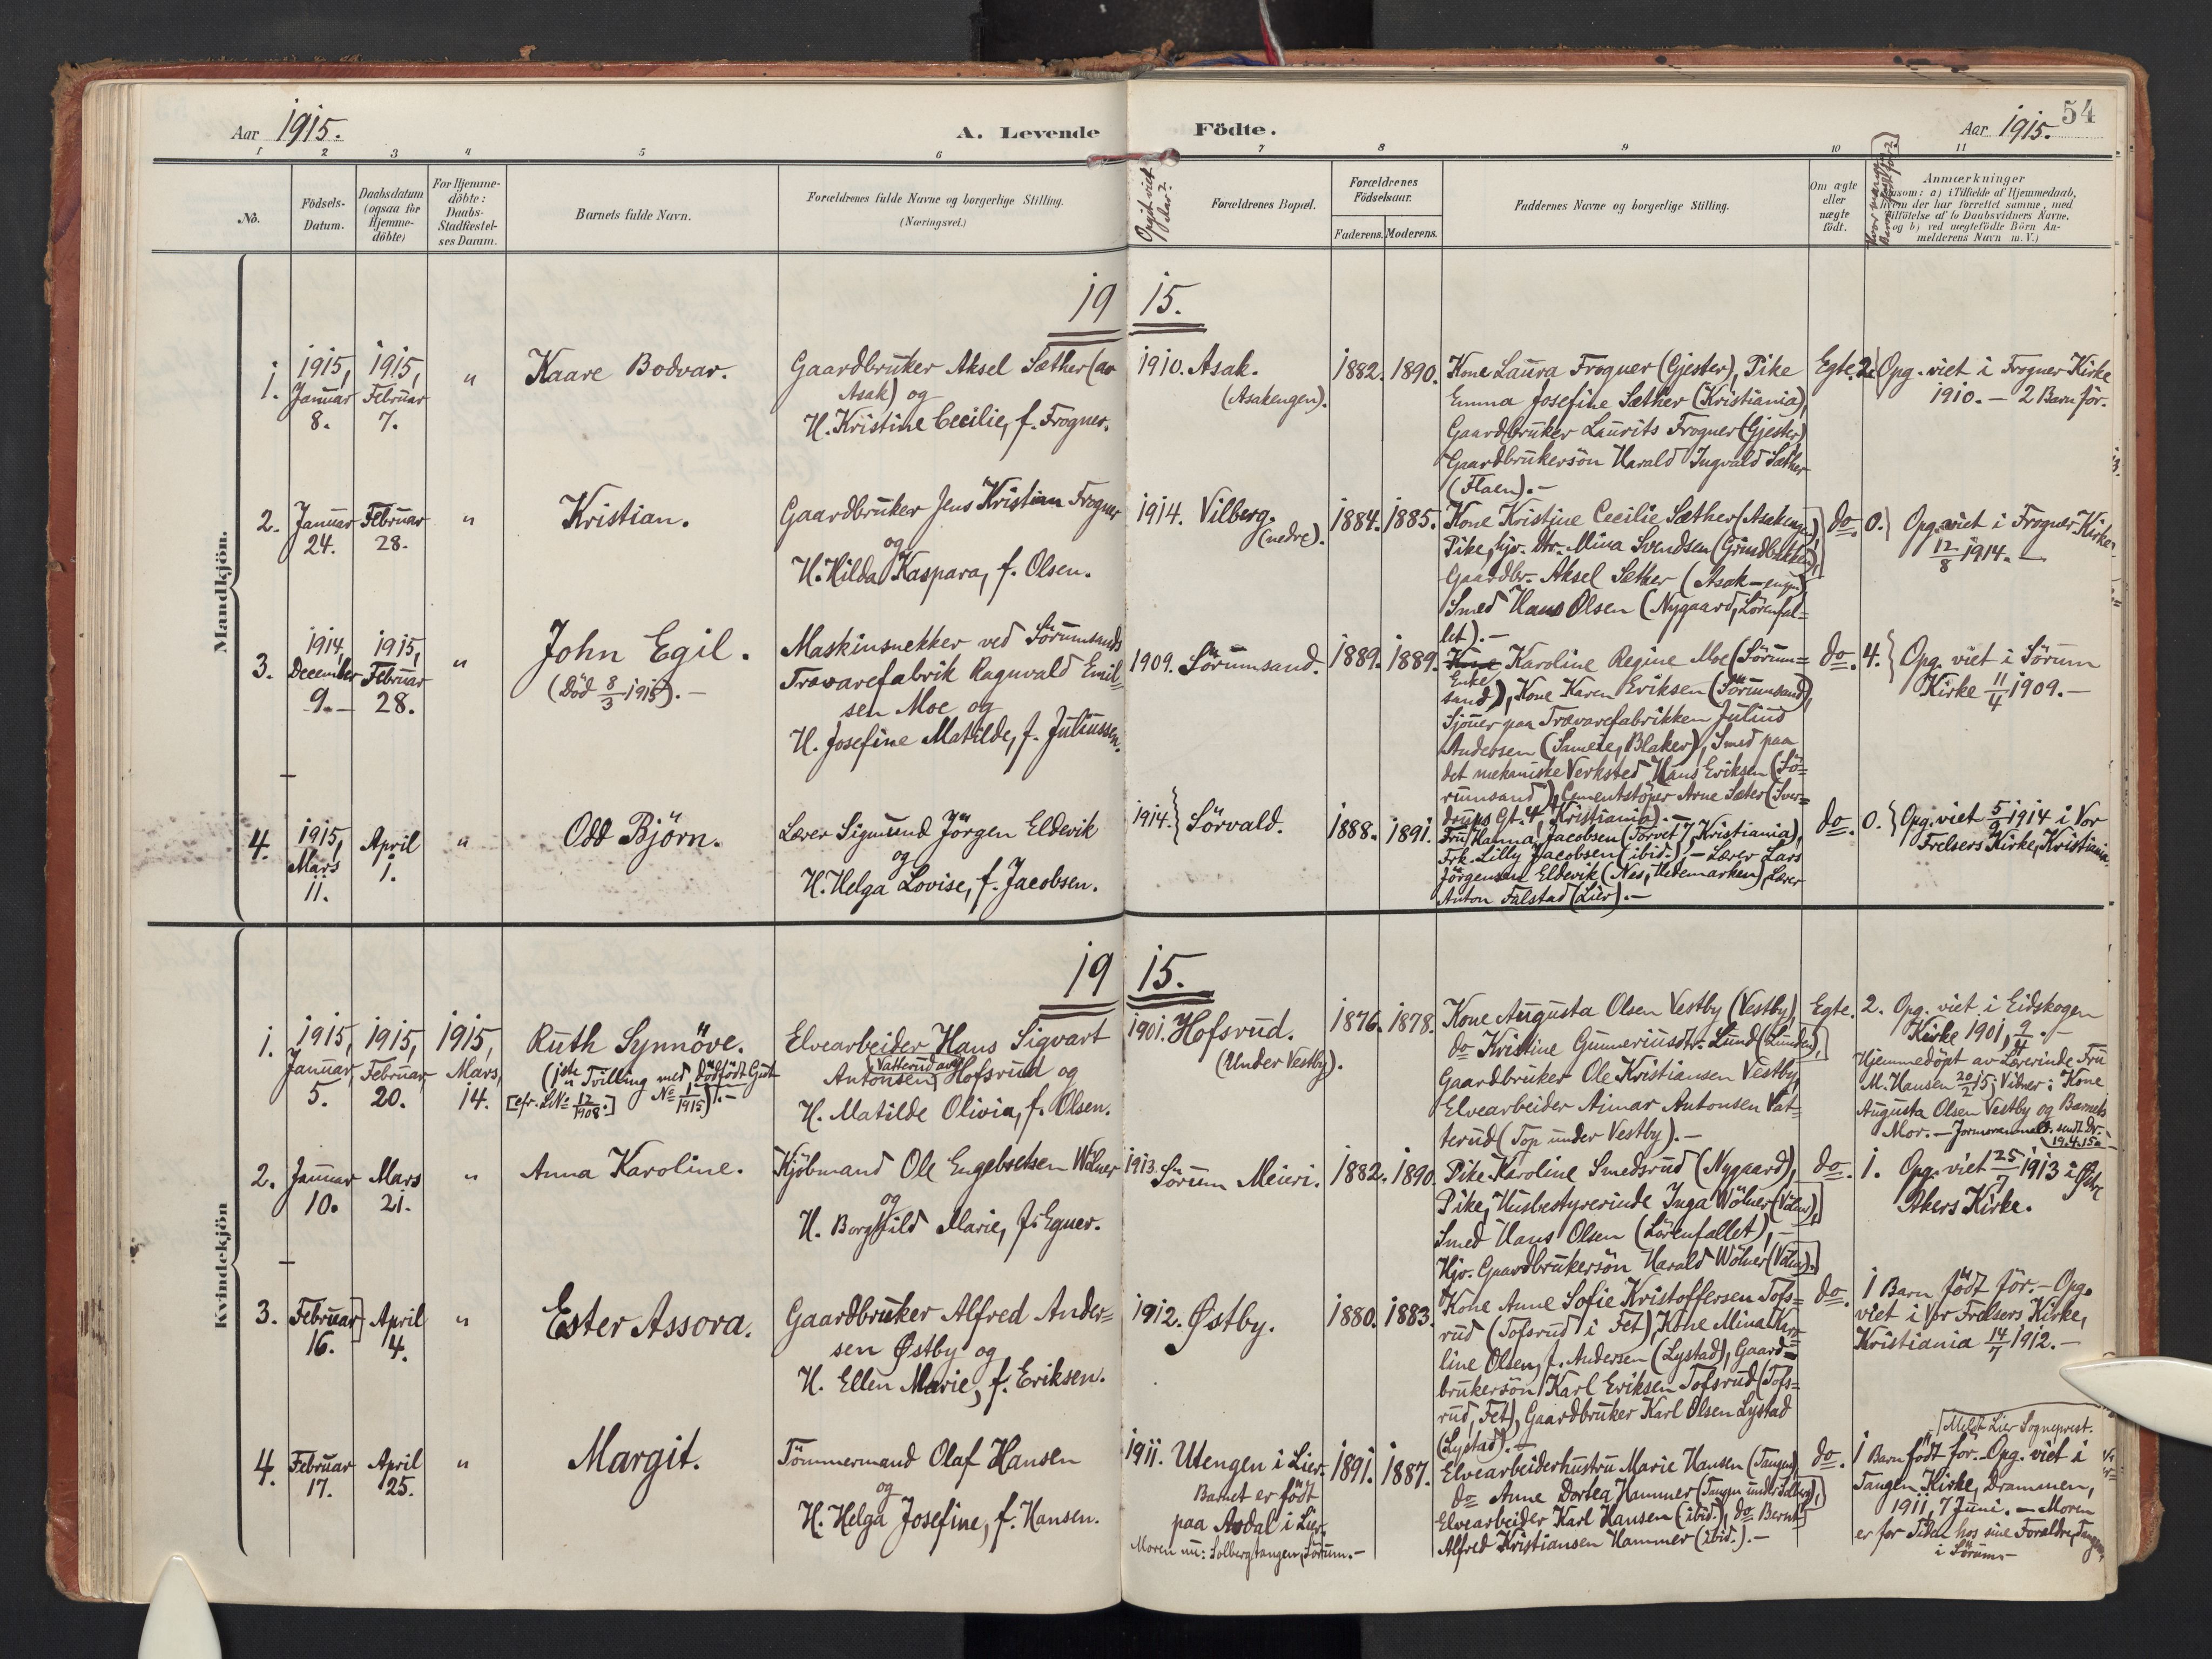 Aar 1915.
A. Levende Födte.
Aar 1915.
54
1 2 3 4 5 6 7 8 9 10 11
No.
Födsels-
Datum.
Daabsdatum
(ogsaa for
Hjemme-
döbte)
For Hjemme-
döbte:
Daabs-
Stadfæstel-
ses Datum.
Barnets fulde Navn.
Forældrenes fulde Navne og borgerlige Stilling.
(Næringsvei.)
Opgit viet
i aar?
Forældrenes Bopæl.
Forældrenes
Födselsaar.
Faderens. Moderens.
Faddernes Navne og borgerlige Stilling.
Om ægte
eller
uægte
födt.
Anmærkninger
(saasom: a) i Tilfælde af Hjemmedaab,
hvem der har forrettet samme, med
Tilföielse af to Daabsvidners Navne.
og b) ved uægtefödte Börn An-
melderens Navn m. V.)
Mandkjön.
1915.
1.
1915,
Januar
8.
1915,
Februar
7.
"
Kaare Bodvar.
Gaardbruker Aksel Sæther (av
Asak) og
H. Kristine Cecilie, f. Frogner.
1910. Asak.
(Asakengen).
1882. 1890.
Kone Laura Frogner (Gjester), Pike
Emma Josefine Sæther (Kristiania),
Gaardbruker Laurits Frogner (Gjester)
Gaardbrukersön Harald Ingvald Sæther
(Flaen).-
Egte. 2.
Opg. viet i Frogner Kirke
1910. - 2 Barn för.
2.
Januar
24.
Februar
28.
"
Kristian.
Gaardbruker Jens Kristian Frogner
og
H. Hilda Kaspara, f. Olsen.
1914. Vilberg.
(nedre).
1884. 1885.
Kone Kristine Cecilie Sæther (Asakengen),
Pike, hjv. dtr. Mina Svendsen (Grindbakken),
Gaardbr. Aksel Sæther (Asak-engen)
Smed Hans Olsen (Nygaard, Lörenfal=
let).-
do. 0.
Opg. viet i Frogner Kirke
12/8 1914. -
3.
1914,
December
9.-
1915,
Februar
28.
"
John Egil.
(Död 8/3 1915).-
Maskinsnekker ved Sörumsands
Trævarefabrik Ragnvald Emil=
sen Moe og
H. Josefine Matilde, f. Juliussen.
1909. Sörumsand.
1889. 1889.
Kone Karoline Regine Moe (Sörum=
Enke
sand), Kone Karen Eriksen (Sörumsand),
Sjöuer paa Trævarefabrikken Julius
Andersen (Sameie, Blaker), Smed paa
det mekaniske Verksted Hans Eriksen (Sö=
rumsand), Cementstöper Arne Sæter (Sver=
drups Gt. 4, Kristiania).-
do. 4.
Opg. viet i Sörum
Kirke 11/4 1909.-
4.
1915,
Mars
11.
April
1.
"
Odd Björn.
Lærer Sigmund Jörgen Eldevik
og
H. Helga Lovise, f. Jacobsen.
1914. Sörvald.
1888. 1891.
Fru Hanna Jacobsen (Torvet 7, Kristiania),
Frk. Lilly Jacobsen (ibid.), - Lærer Lars
Jörgensen Eldevik (Nes, Hedemarken), Lærer
Anton Falstad (Lier).-
do. 0.
Opg. viet 5/9 1914 i Vor
Frelsers Kirke, Kristiania.
Kvindekjön
1915.
1.
1915,
Januar
5.
1915,
Februar
20.
1915,
Mars,
14.
Ruth Synnöve.
(1ste Tvilling med dödfödt Gut
[cfr. L. No 12/1908.] No 1/1915).-
Elvearbeider Hans Sigvart
Vatterud av
Antonsen, Hofsrud og
H. Matilde Olivia, f. Olsen.
1901. Hofsrud.
(Under Vestby).
1876. 1878.
Kone Augusta Olsen Vestby (Vestby),
do Kristine Gunneriusdtr. Lund (Lunden),
Gaardbruker Ole Kristiansen Vestby,
Elvearbeider Aimar Antonsen Vat=
terud (Top under Vestby).-
Egte. 2.
Opg. viet i Eidskogen
Kirke 1901, 2/4.-
Hjemmedöpt av Lærerinde Fru
M. Hansen 20/2 15; Vidner: Kone
Augusta Olsen Vestby og Barnets
Mor. - Jormoranmeld. sendt Dr.
19.4.15.
2.
Januar
10.
Mars
21.
"
Anna Karoline.
Kjöbmand Ole Engebretsen Wölner
og
H. Borghild Marie, f. Egner.
1913. Sörum Meieri.
1882. 1890.
Pike Karoline Smedsrud (Nygaard),
Pike, Husbestyrerinde Inga Wölner (Völner),
Smed Hans Olsen (Lörenfallet),-
Hjv. Gaardbrukersön Harald Wölner (Völner).
do. 1.
Opg. viet 25/7 1913 i Østre
Akers Kirke.
3.
Februar
16.
April
4.
"
Ester Assora.
Gaardbruker Alfred Ander=
sen Østby og
H. Ellen Marie, f. Eriksen.
1912. Østby.
1880. 1883.
Kone Anne Sofie Kristoffersen Tofs=
rud (Tofsrud i Fet), Kone Mina Karo=
line Olsen, f. Andersen (Lystad), Gaard=
brukersön Karl Eriksen Tofsrud (Tofs=
rud, Fet), Gaardbruker Karl Olsen Lystad
(Lystad).-
do.
1 Barn födt för.- Opg.
viet i Vor Frelsers Kirke,
Kristiania 14/7 1912.-
4.
Februar
17.
April
25.
"
Margit.
Tömmermand Olaf Hansen
og
H. Helga Josefine, f. Hansen.
1911. Utengen i Lier.
Barnet er födt
paa Asdal i Lier.
Moren nu: Solbergtangen, Sörum.-
1891. 1887.
Elvearbeiderhustru Marie Hansen (Tangen)
do Anne Dortea Hammer (Tangen under Solberg),
Elvearbeider Karl Hansen (ibid.), do Bernt
Alfred Kristiansen Hammer (ibid.).-
do.
Meldt Lier Sogneprest.
1 Barn födt för.- Opg. viet i
Tangen Kirke, Drammen,
1911, 7 Juni. - Moren
er for Tiden hos sine Forældre, Tangen,
i Sörum-